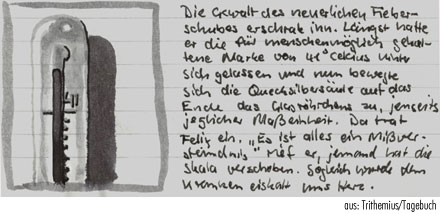 Die Gewalt des neuerlichen Fieber-
schubes erschrak ihn. Längst hatte
er die für menschenmöglich gehal-
tene Marke von 41° Celsius hinter
sich gelassen und nun bewegte
sich die Quecksilbersäule auf das
Ende des Glasröhrchens zu, jenseits
jeglicher Maßeinheit. Da trat
Felix ein. „Es ist alles ein Mißver-
ständnis" rief er, jemand hat die
Skala verschoben. Sogleich wurde dem
Kranken eiskalt ums Herz.
aus: Trithemius/Tagebuch